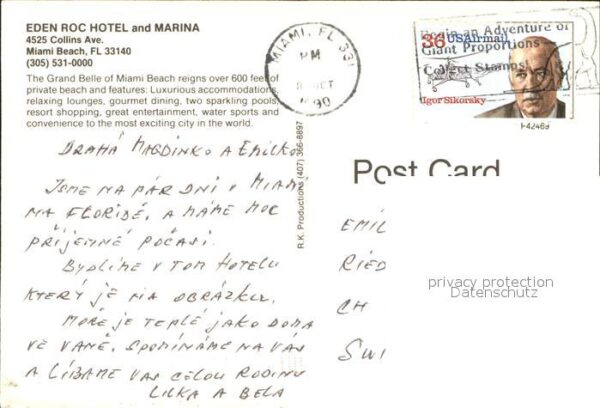 EDEN ROC HOTEL and MARINA
4525 Collins Ave.
Miami Beach, FL 33140
(305) 531-0000
The Grand Belle of Miami Beach reigns over 600 feet of
private beach and features: Luxurious accommodations,
relaxing lounges, gourmet dining, two sparkling pools,
resort shopping, great entertainment, water sports and
convenience to the most exciting city in the world.
MIAMI, FL 331
PM
OCT
1990
Begin an Adventure of
Giant Proportions
Collect Stamps!
36 USAirmail
Igor Sikorsky
DRAHÁ MAGDINKO A EMILKO
JSME NA PÁR DNÍ V MIAMI
NA FLORIDĚ, A MÁME MOC
PŘÍJEMNÉ POČASÍ.
BYDLÍME V TOM HOTELU
KTERÝ JE NA OBRÁZKU.
MOŘE JE TEPLÉ JAKO DOMA
VE VANĚ. SPOMÍNÁME NA VÁS
A LÍBÁME VÁS CELOU RODINU
LILKA A BELA
R.K. Productions (407) 366-8897
Post Card
EMIL
RIED
CH
SWI
privacy protection
Datenschutz